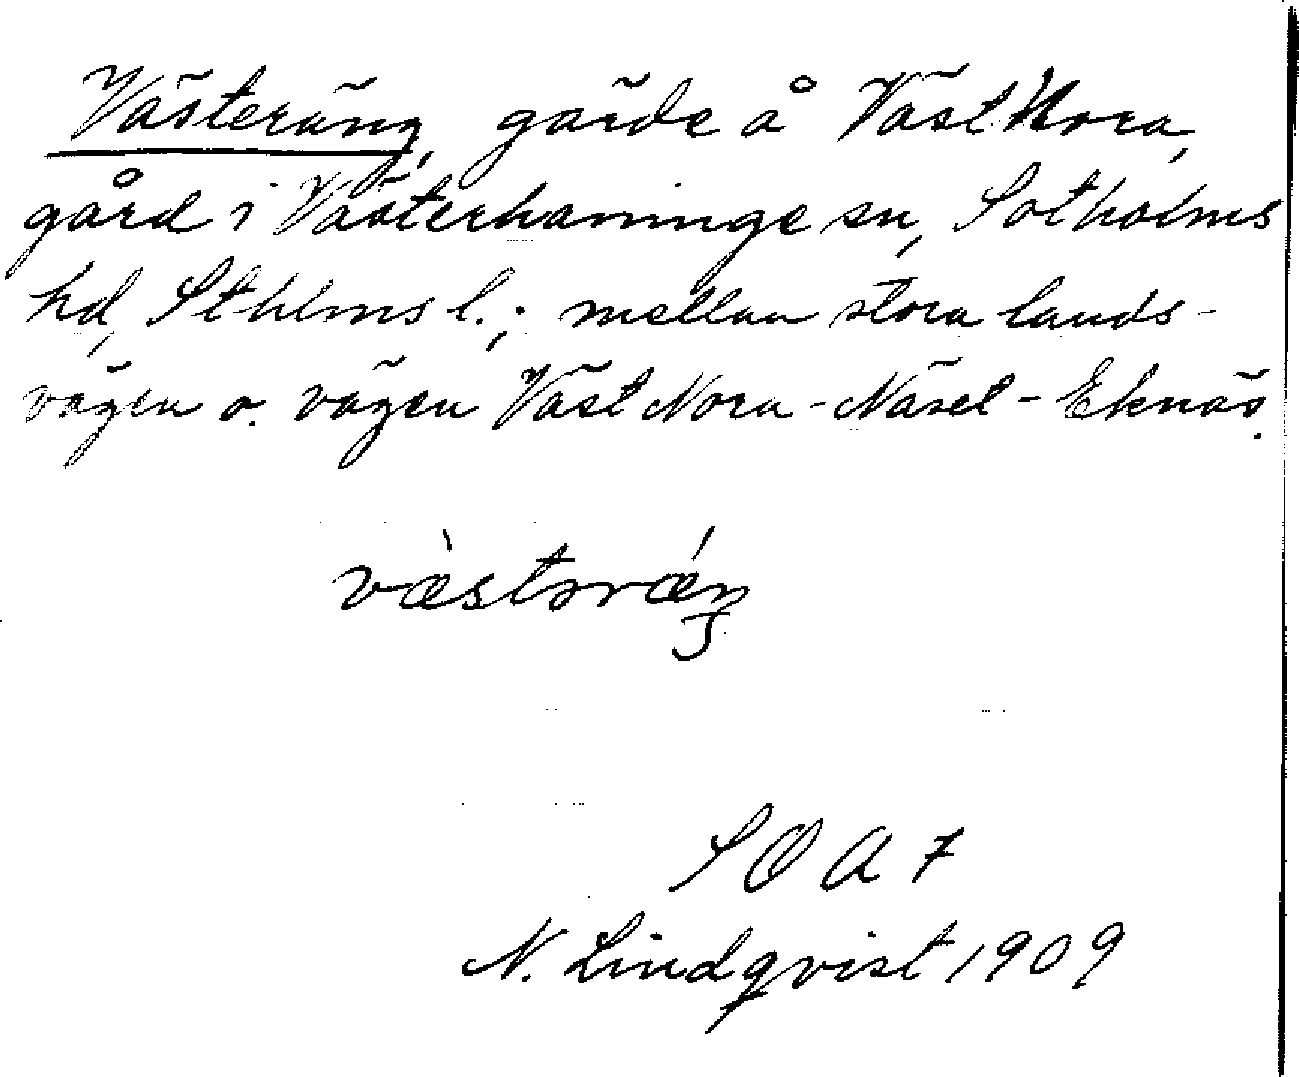 Västeräng, gärde å Väst Nora,
gård i Västerhaninge sn, Sotholms
hd, Sthlms l.; mellan stora lands-
vägen o. vägen Väst Nora - Näset - Eknäs.
væ̀stərǽŋ
SOA 7
N. Lindqvist 1909